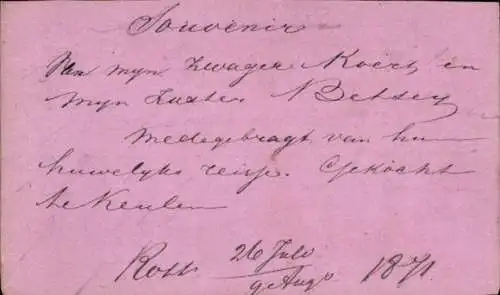 Souvenir
Van myn Zwager Koert en
myn Zuster Betsey
medegebragt van hun
huwelyks reisje. Gekocht
te Keulen
Rott 26 July
9 Augs 1871.